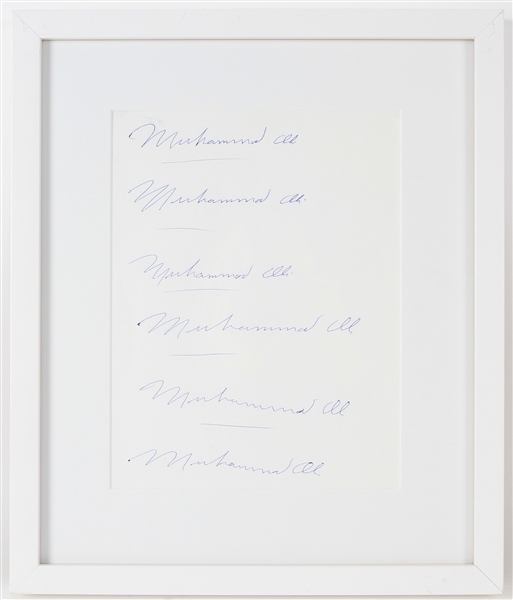 Muhammad Ali
Muhammad Ali
Muhammad Ali
Muhammad Ali
Muhammad Ali
Muhammad Ali